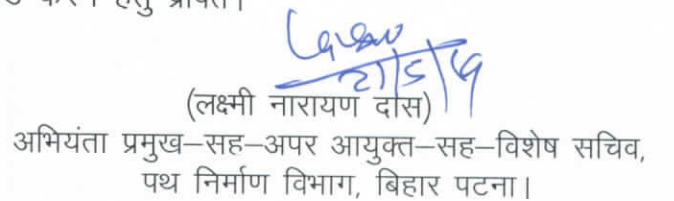 करने हेतु प्रेषित।
21/5/15
(लक्ष्मी नारायण दास)
अभियंता प्रमुख–सह–अपर आयुक्त–सह–विशेष सचिव,
पथ निर्माण विभाग, बिहार पटना।